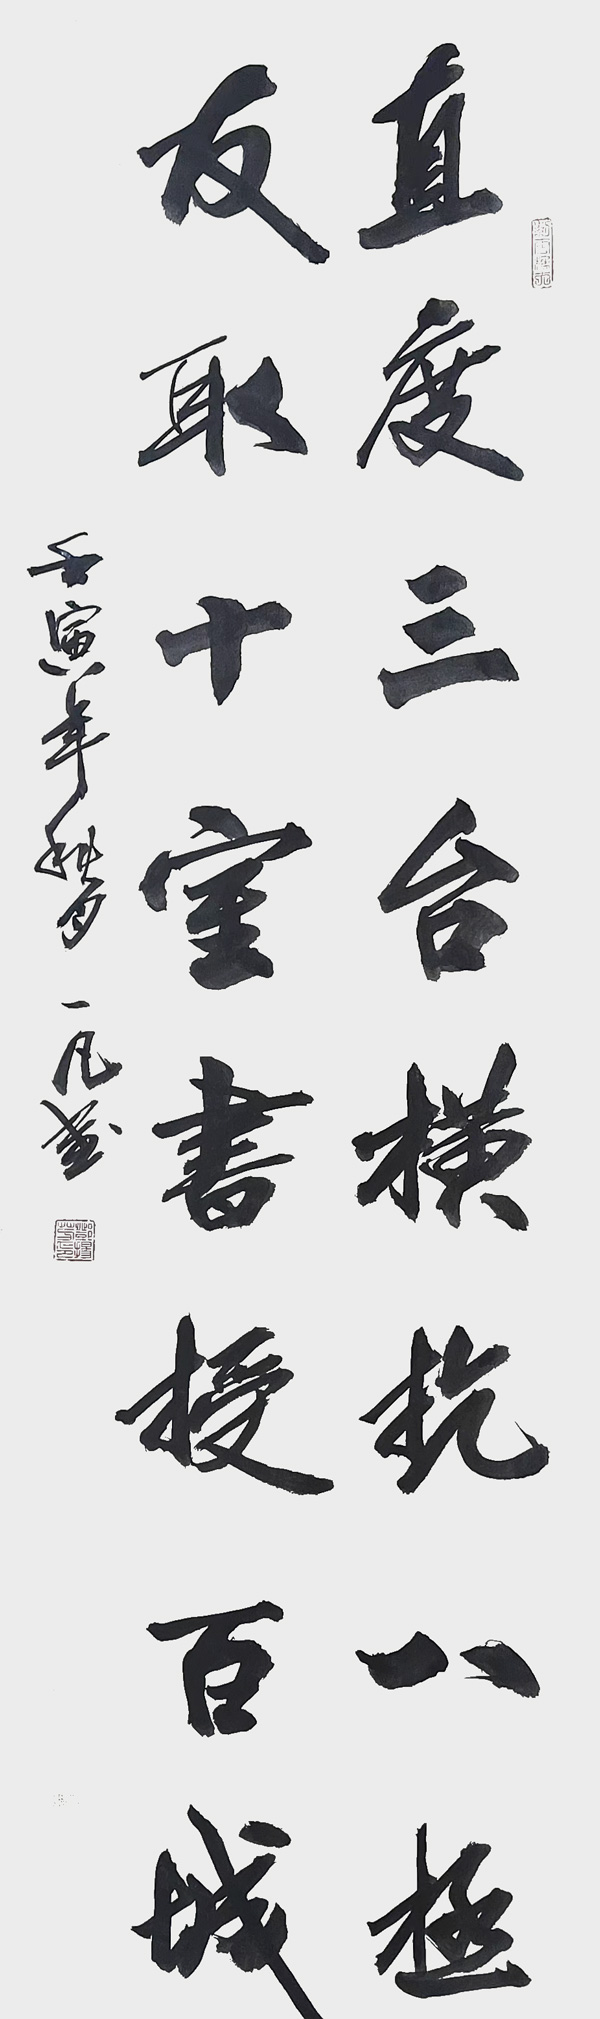 直度三台横抗八極
友取十室書授百城
壬寅年秋月一凡書